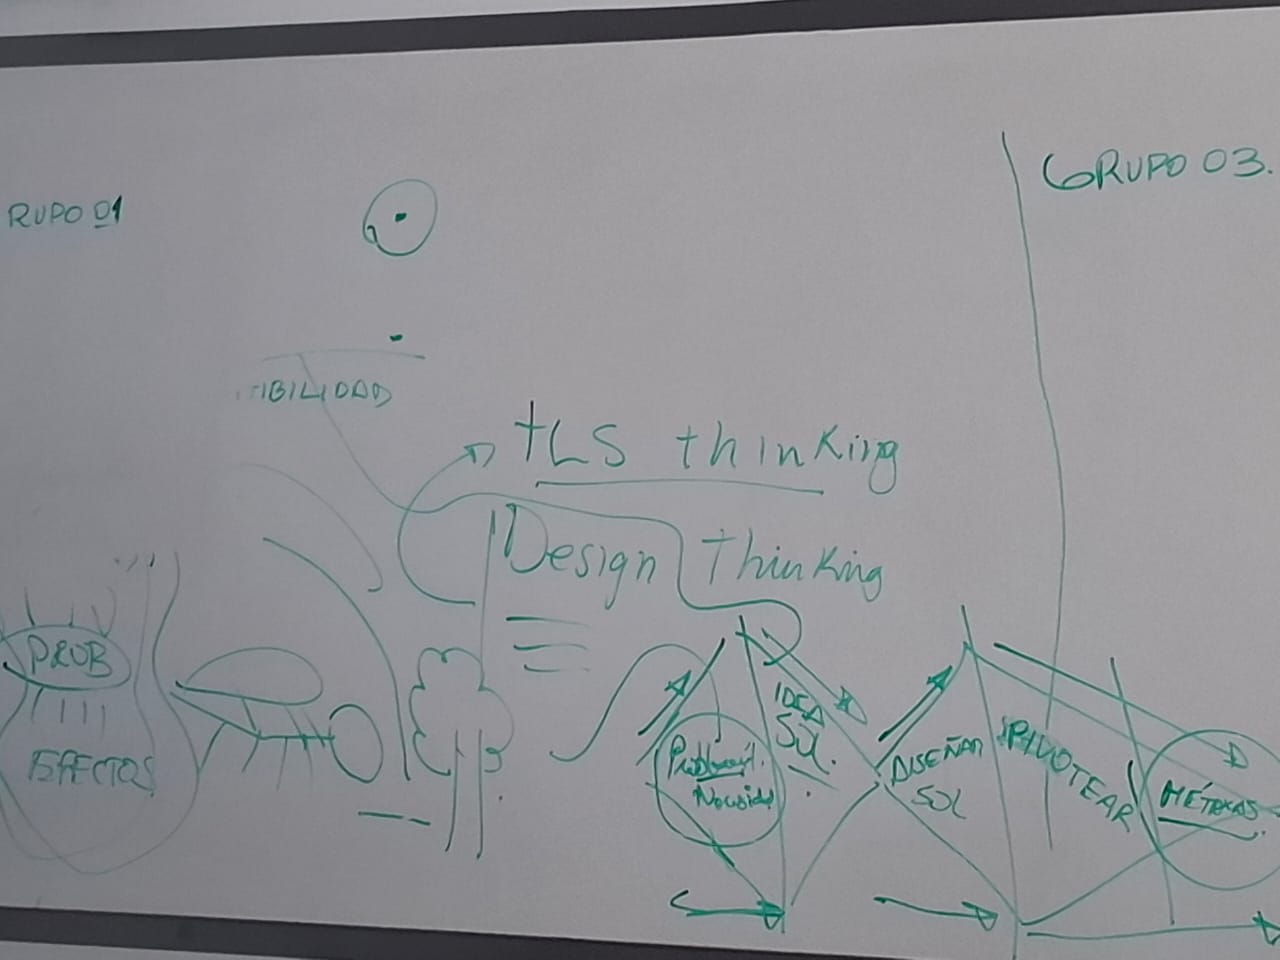 RUPO 01
GRUPO 03.
IBILIDAD
TLS thinking
Design Thinking
PROB
EFECTOS
IDEA
SOL.
DISEÑAR
SOL
PIVOTEAR
MÉTRICAS